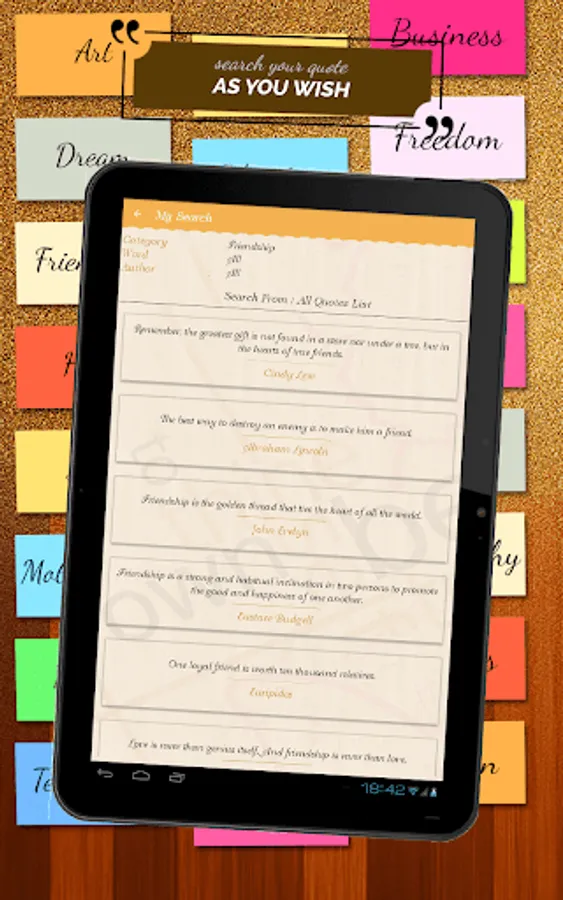 Art
Business
search your quote
AS YOU WISH
Dream
Freedom
My Search
Category Friendship
Word All
Author All
Search From : All Quotes List
Remember, the greatest gift is not found in a store nor under a tree, but in
the hearts of true friends.
Cindy Lew
The best way to destroy an enemy is to make him a friend.
Abraham Lincoln
Friendship is the golden thread that ties the heart of all the world.
John Evelyn
Friendship is a strong and habitual inclination in two persons to promote
the good and happiness of one another.
Eustace Budgell
One loyal friend is worth ten thousand relatives.
Euripides
Love is rarer than genius itself. And friendship is rarer than love.
18:42